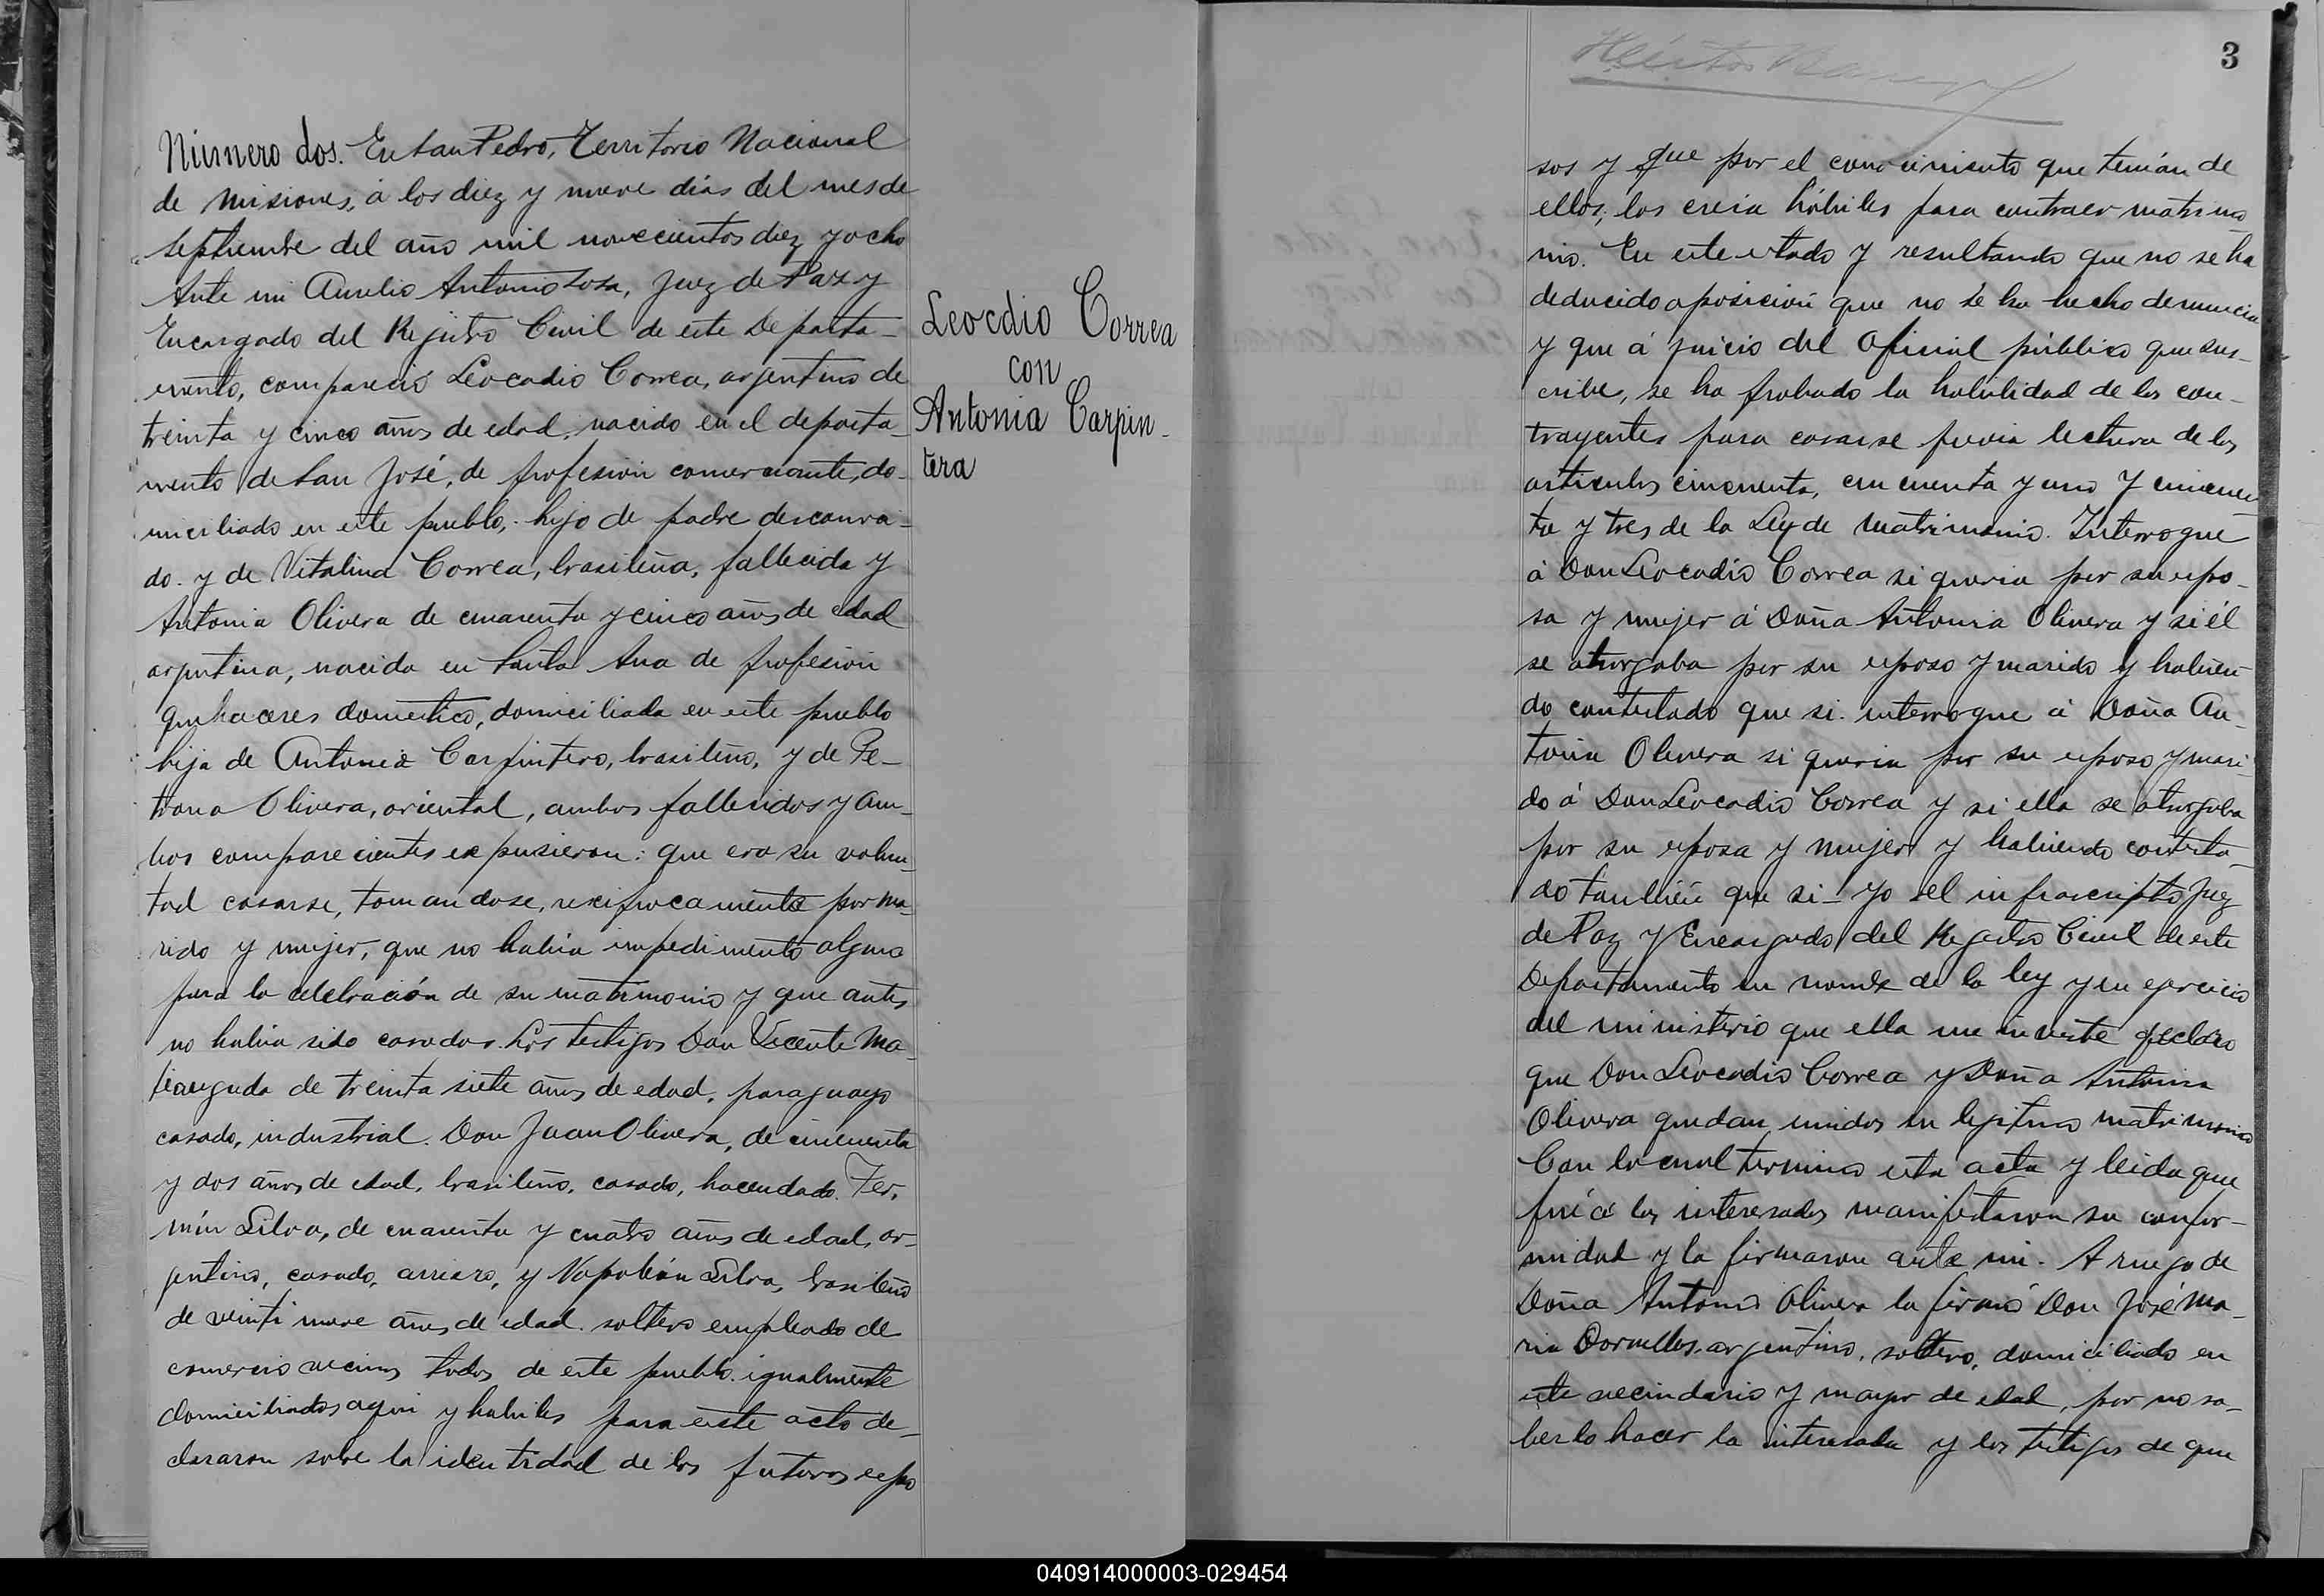 Número dos. En San Pedro, Territorio Nacional
de Misiones, á los diez y nueve dias del mes de
Septiembre del año mil novecientos diez y ocho
Ante mi Aurelio Antonio Sosa, Juez de Paz y
Encargado del Rejistro Civil de este Departa-
mento, compareció Leocadio Correa, argentino de
treinta y cinco años de edad, nacido en el departa-
mento de San José, de profesión comerciante, do-
miciliado en este pueblo, hijo de padre desconoci-
do y de Vitalina Correa, brasileña, fallecida y
Antonia Olivera de cuarenta y cinco años de edad
argentina, nacida en Santa Ana de profesión
quehaceres domestico, domiciliada en este pueblo
hija de Antonio Carpintero, brasileño, y de Pe-
trona Olivera, oriental, ambos fallecidos y am-
bos comparecientes expusieron: que era su volun-
tad casarse, tomandose, reciprocamente por ma-
rido y mujer, que no habia impedimento alguno
para la celebración de su matrimonio y que antes
no habia sido casados. Los testigos Don Vicente Ma-
de treinta siete años de edad, paraguayo
casado, industrial. Don Juan Olivera, de cincuenta
y dos años de edad, brasileño, casado, hacendado. Fer-
mín Silva, de cuarenta y cuatro años de edad, ar-
gentino, casado, arriero, y Napoleón Silva, brasileño
de veinti nueve años de edad. soltero empleado de
comercio vecinos todos de este pueblo. igualmente
domiciliados aqui y habiles para este acto de-
clararon sobre la identidad de los futuros espo
Leocdio Correa
con
Antonia Carpin-
tera
3
sos y que por el conocimiento que tenian de
ellos, los creia hábiles para contraer matrimo
nio. En este estado y resultando que no se ha
deducido oposición que no se ha hecho denuncia
y que á juicio del Oficial público que sus-
cribe, se ha probado la habilidad de los con-
trayentes para casarse previa lectura de los
articulos cincuenta, cincuenta y uno y cincuen
ta y tres de la Ley de Matrimonio. Interrogue
á Don Leocadio Correa si queria por su espo-
sa y mujer á Doña Antonia Olivera y si él
se otorgaba por su esposo y marido y habien
do contestado que si. interrogue á Doña An-
tonia Olivera si queria por su esposo y mari-
do á Don Leocadio Correa y si ella se otorgaba
por su esposa y mujer y habiendo contesta-
do también que si - Yo el infrascripto Juez
de Paz y Encargado del Registro Civil de este
Departamento en nombre de la ley y en ejercicio
del ministerio que ella me inviste declaro
que Don Leocadio Correa y Doña Antonia
Olivera quedan unidos en legitimo matrimonio
Con lo cual termino esta acta y leida que
fué á los interesados manifestaron su confor-
midad y la firmaron ante mi. A ruego de
Doña Antonia Olivera la firmó Don José Ma-
ria Dornelles, argentino, soltero, domiciliado en
este vecindario y mayor de edad, por no sa-
berlo hacer la interesada y los testigos de que
040914000003-029454